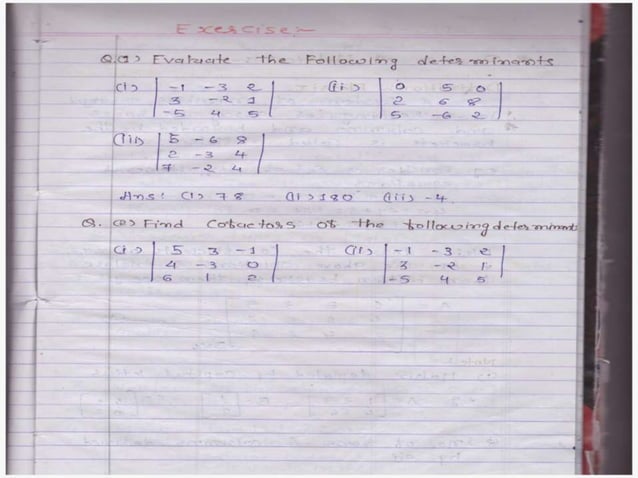 Exercise:-
Q.(1) Evaluate the Following determinants
(i) | -1 -3 2 | (ii) | 0 5 0 |
| 3 -2 1 | | 2 6 8 |
| -5 4 5 | | 5 -6 2 |
(iii) | 5 -6 8 |
| 2 -3 4 |
| 7 -2 4 |
Ans: (i) 78 (ii) 180 (iii) -4.
Q. (2) Find Cofactors of the following determinants
(i) | 5 3 -1 | (ii) | -1 -3 2 |
| 4 -3 0 | | 3 -2 1 |
| 6 1 2 | | -5 4 5 |